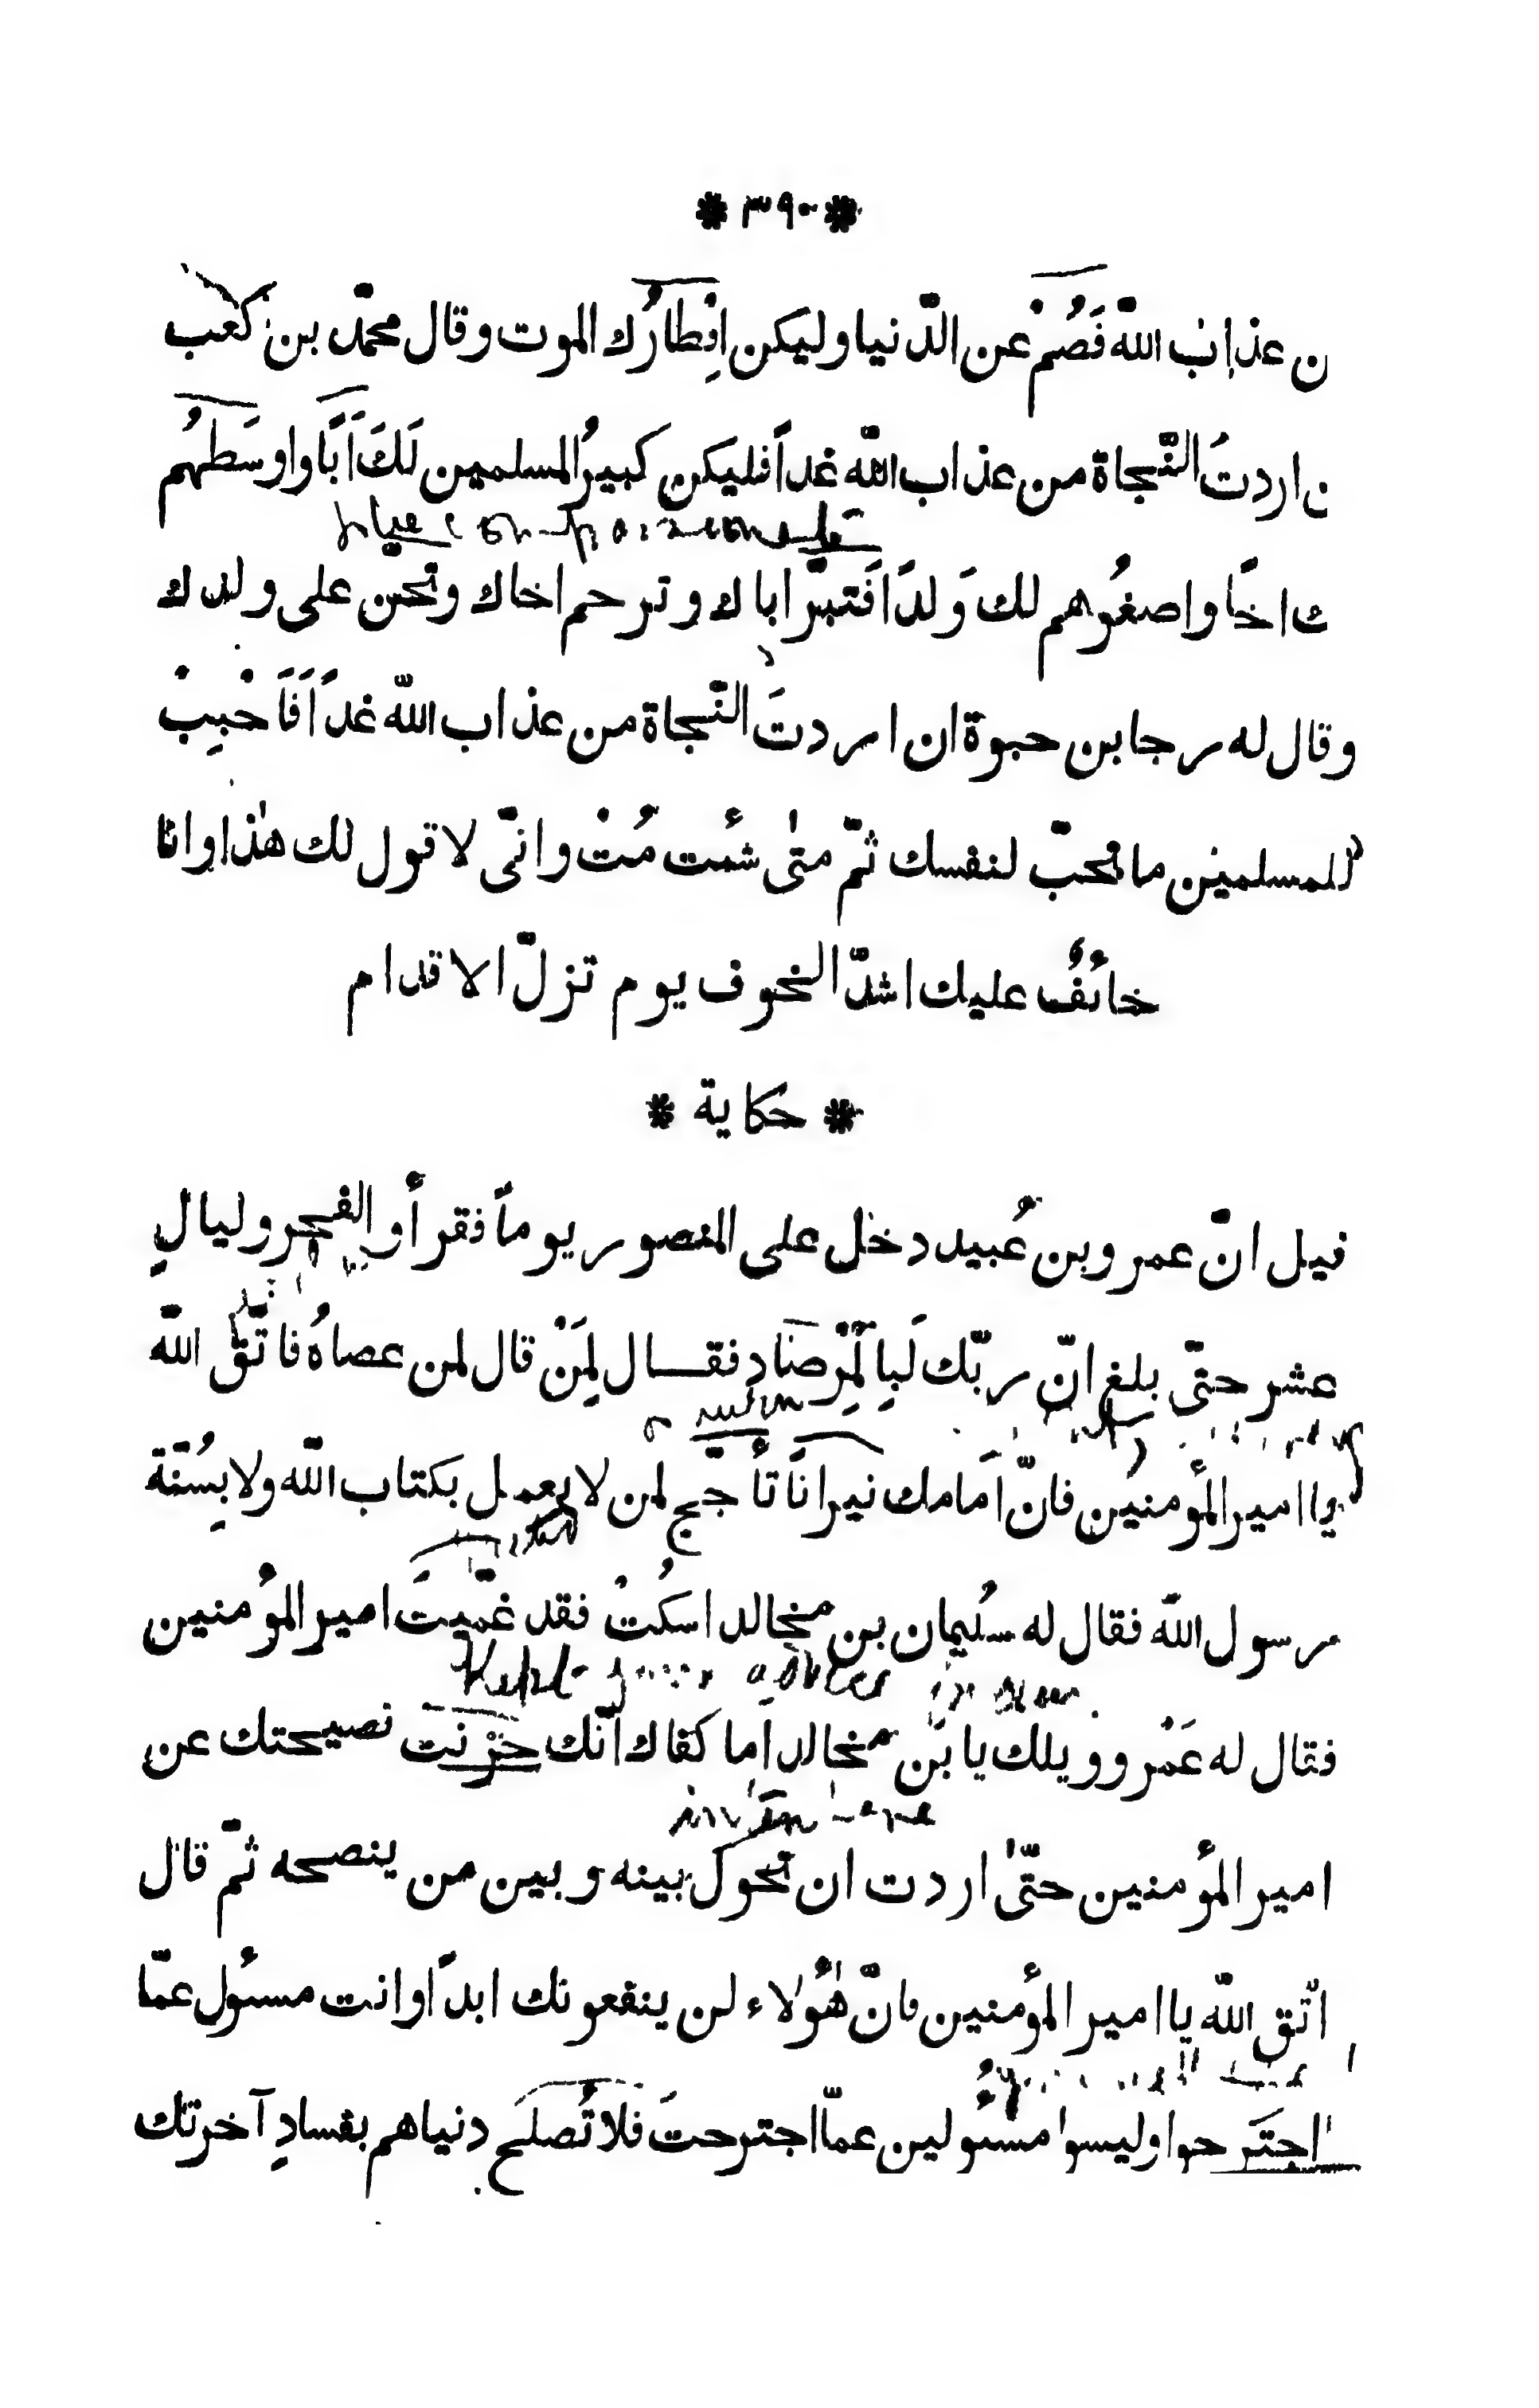 * ٣٩٠ *
ن عذاب اللّٰه فَصُمْ عن الدّنيا وليكن اِفْطارُك الموت وقال محمّد بن كعب
ن اردتَ النّجاة من عذاب اللّٰه غداً فليكن كبيرُ المسلمين لَكَ اَبًا واوسَطهُم
ك اخًا واصغُرهم لك وَلدًا فَتبرّ اباك وترحم اخاك وتحنّ على ولدك
وقال له رجا بن حبوة ان اردتَ النّجاة من عذاب اللّٰه غداً فَاَحْبِبْ
للمسلمين ما تحبّ لنفسك ثمّ متىٰ شئت مُتْ وانّى لاقول لك هٰذا وانا
خائفٌ عليك اشدّ الخوف يوم تزلّ الاقدام
* حكاية *
قيل انّ عمرو بن عُبيد دخل على المنصور يوماً فقرأ والفجر وليالٍ
عشر حتّى بلغ انّ ربّك لَبِالْمِرْصَادِ فقال لِمَنْ قال لمن عصاهُ فاتّق اللّٰه
يا امير المؤمنين فانّ اَمامك نيرانًا تأجّج لمن لا يعمل بكتاب اللّٰه ولا بِسُنّة
رسول اللّٰه فقال له سُليمان بن مخالد اسكُتْ فقد غمّيتَ امير المؤمنين
فقال له عَمْرو ويلك يا بْن مخالد اَما كفاك انّك خزنت نصيحتك عن
امير المؤمنين حتّىٰ اردت ان تحول بينه وبين من ينصحه ثمّ قال
اتّق اللّٰه يا امير المؤمنين فانّ هٰؤُلاء لن ينفعونك ابداً وانت مسئول عمّا
اجتَرحوا وليسوا مسئُولين عمّا اجترحتَ فلا تُصلَح دنياهم بفسادِ آخرتك